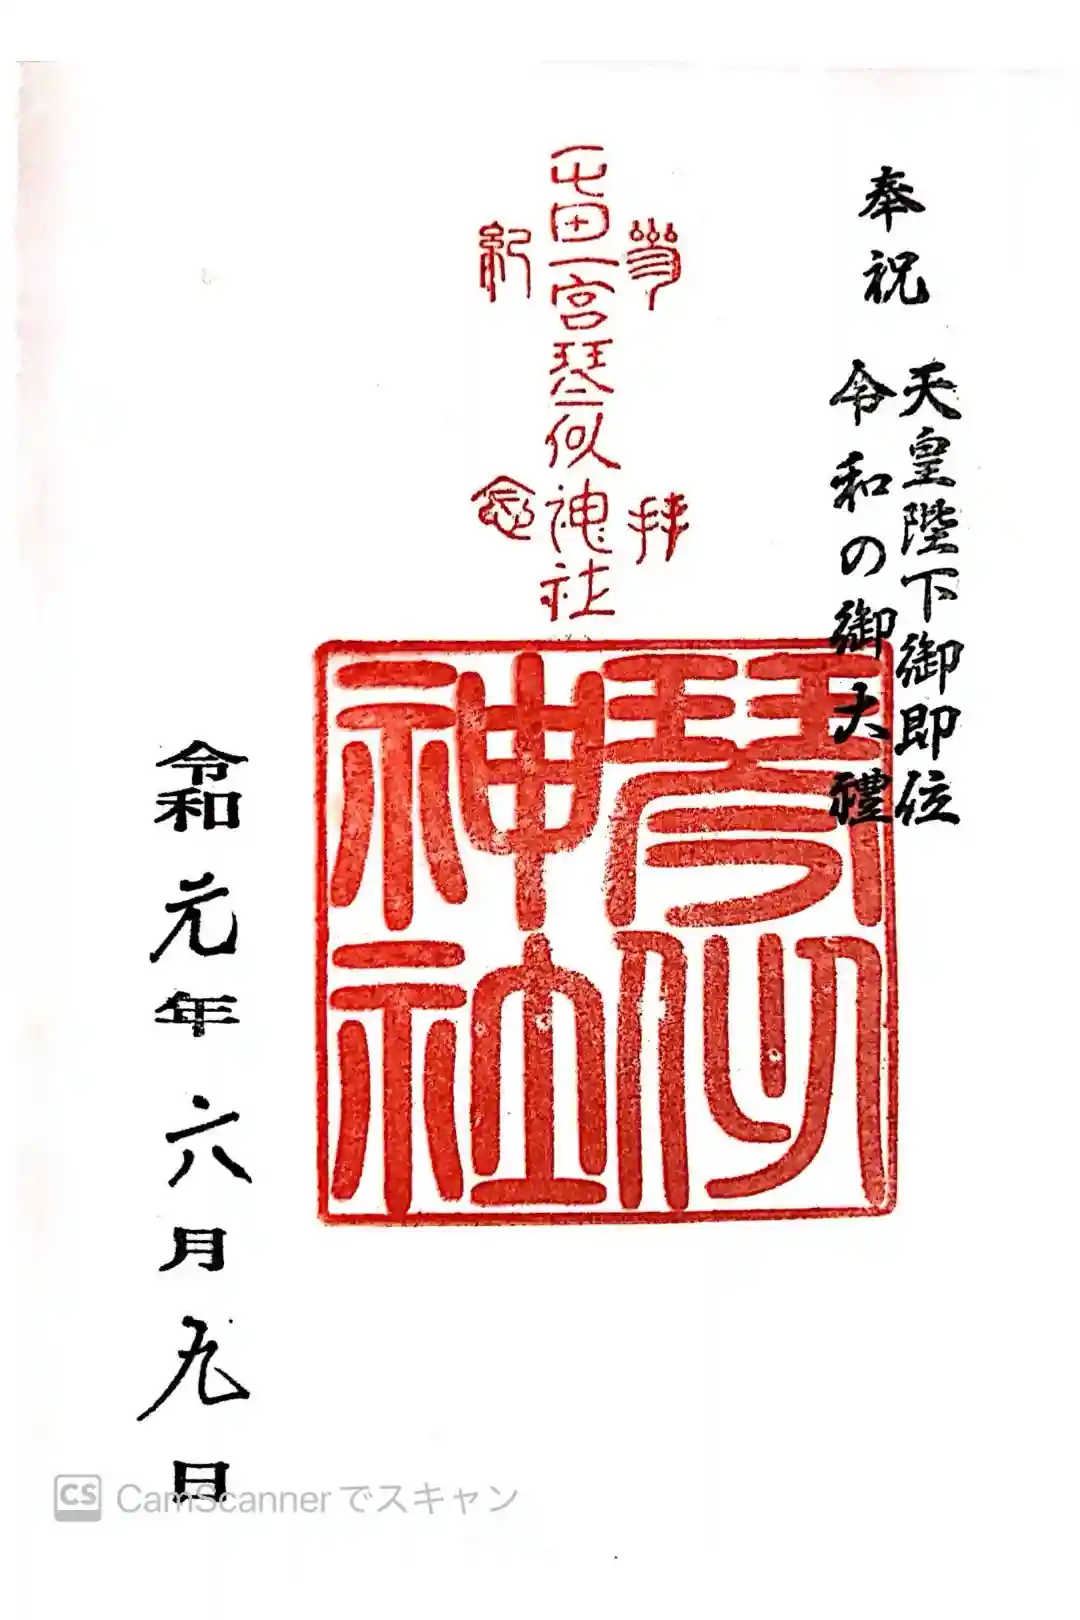 奉祝
天皇陛下御即位
令和の御大禮
參拝
屯田一宮琴似神社
紀念
琴似
神社
令和元年六月九日
CS CamScannerでスキャン